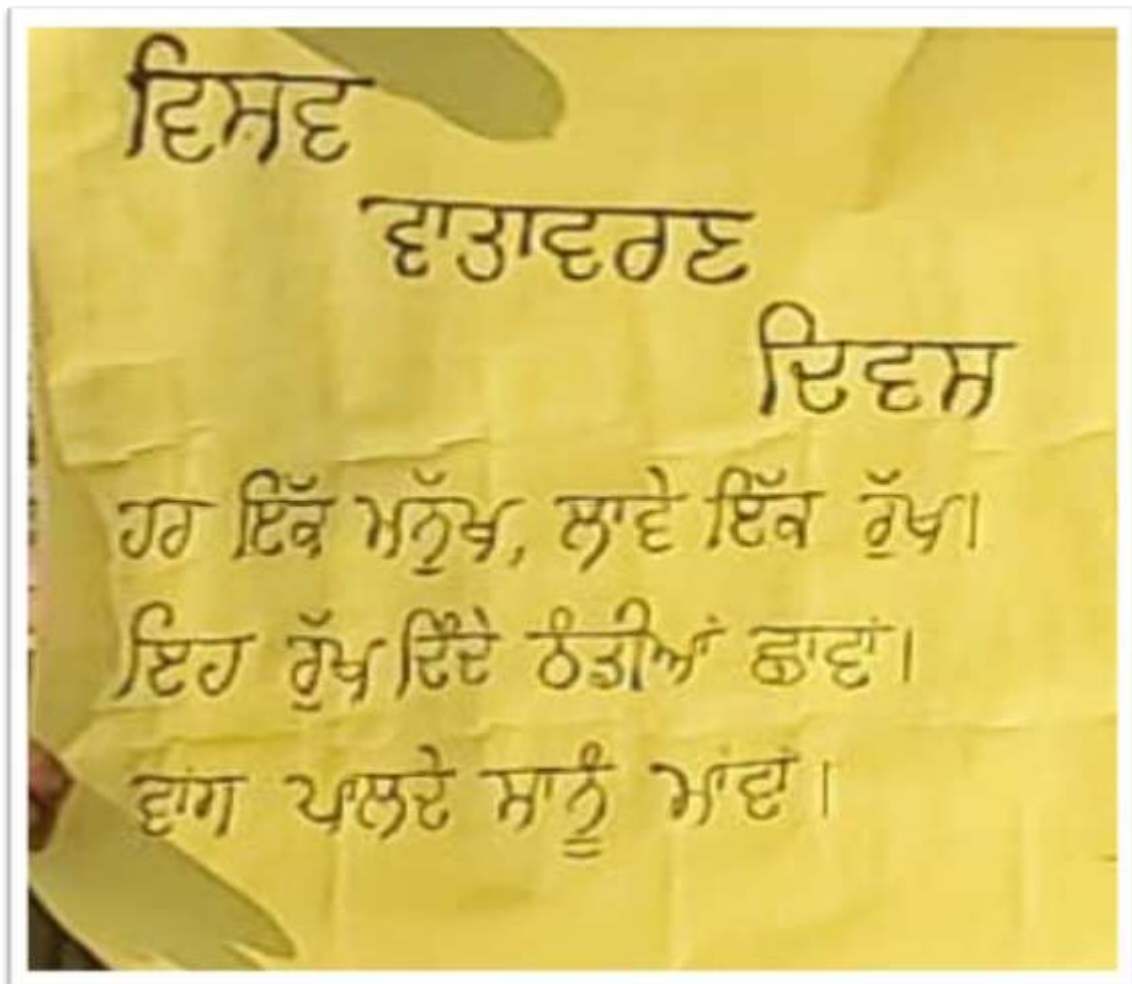 ਵਿਸਵ
ਵਾਤਾਵਰਣ
ਦਿਵਸ
ਹਰ ਇੱਕ ਮਨੁੱਖ, ਲਾਵੇ ਇੱਕ ਰੁੱਖ।
ਇਹ ਰੁੱਖ ਦਿੰਦੇ ਠੰਡੀਆਂ ਛਾਵਾਂ।
ਵਾਂਗ ਪਾਲਦੇ ਸਾਨੂੰ ਮਾਂਵਾਂ।